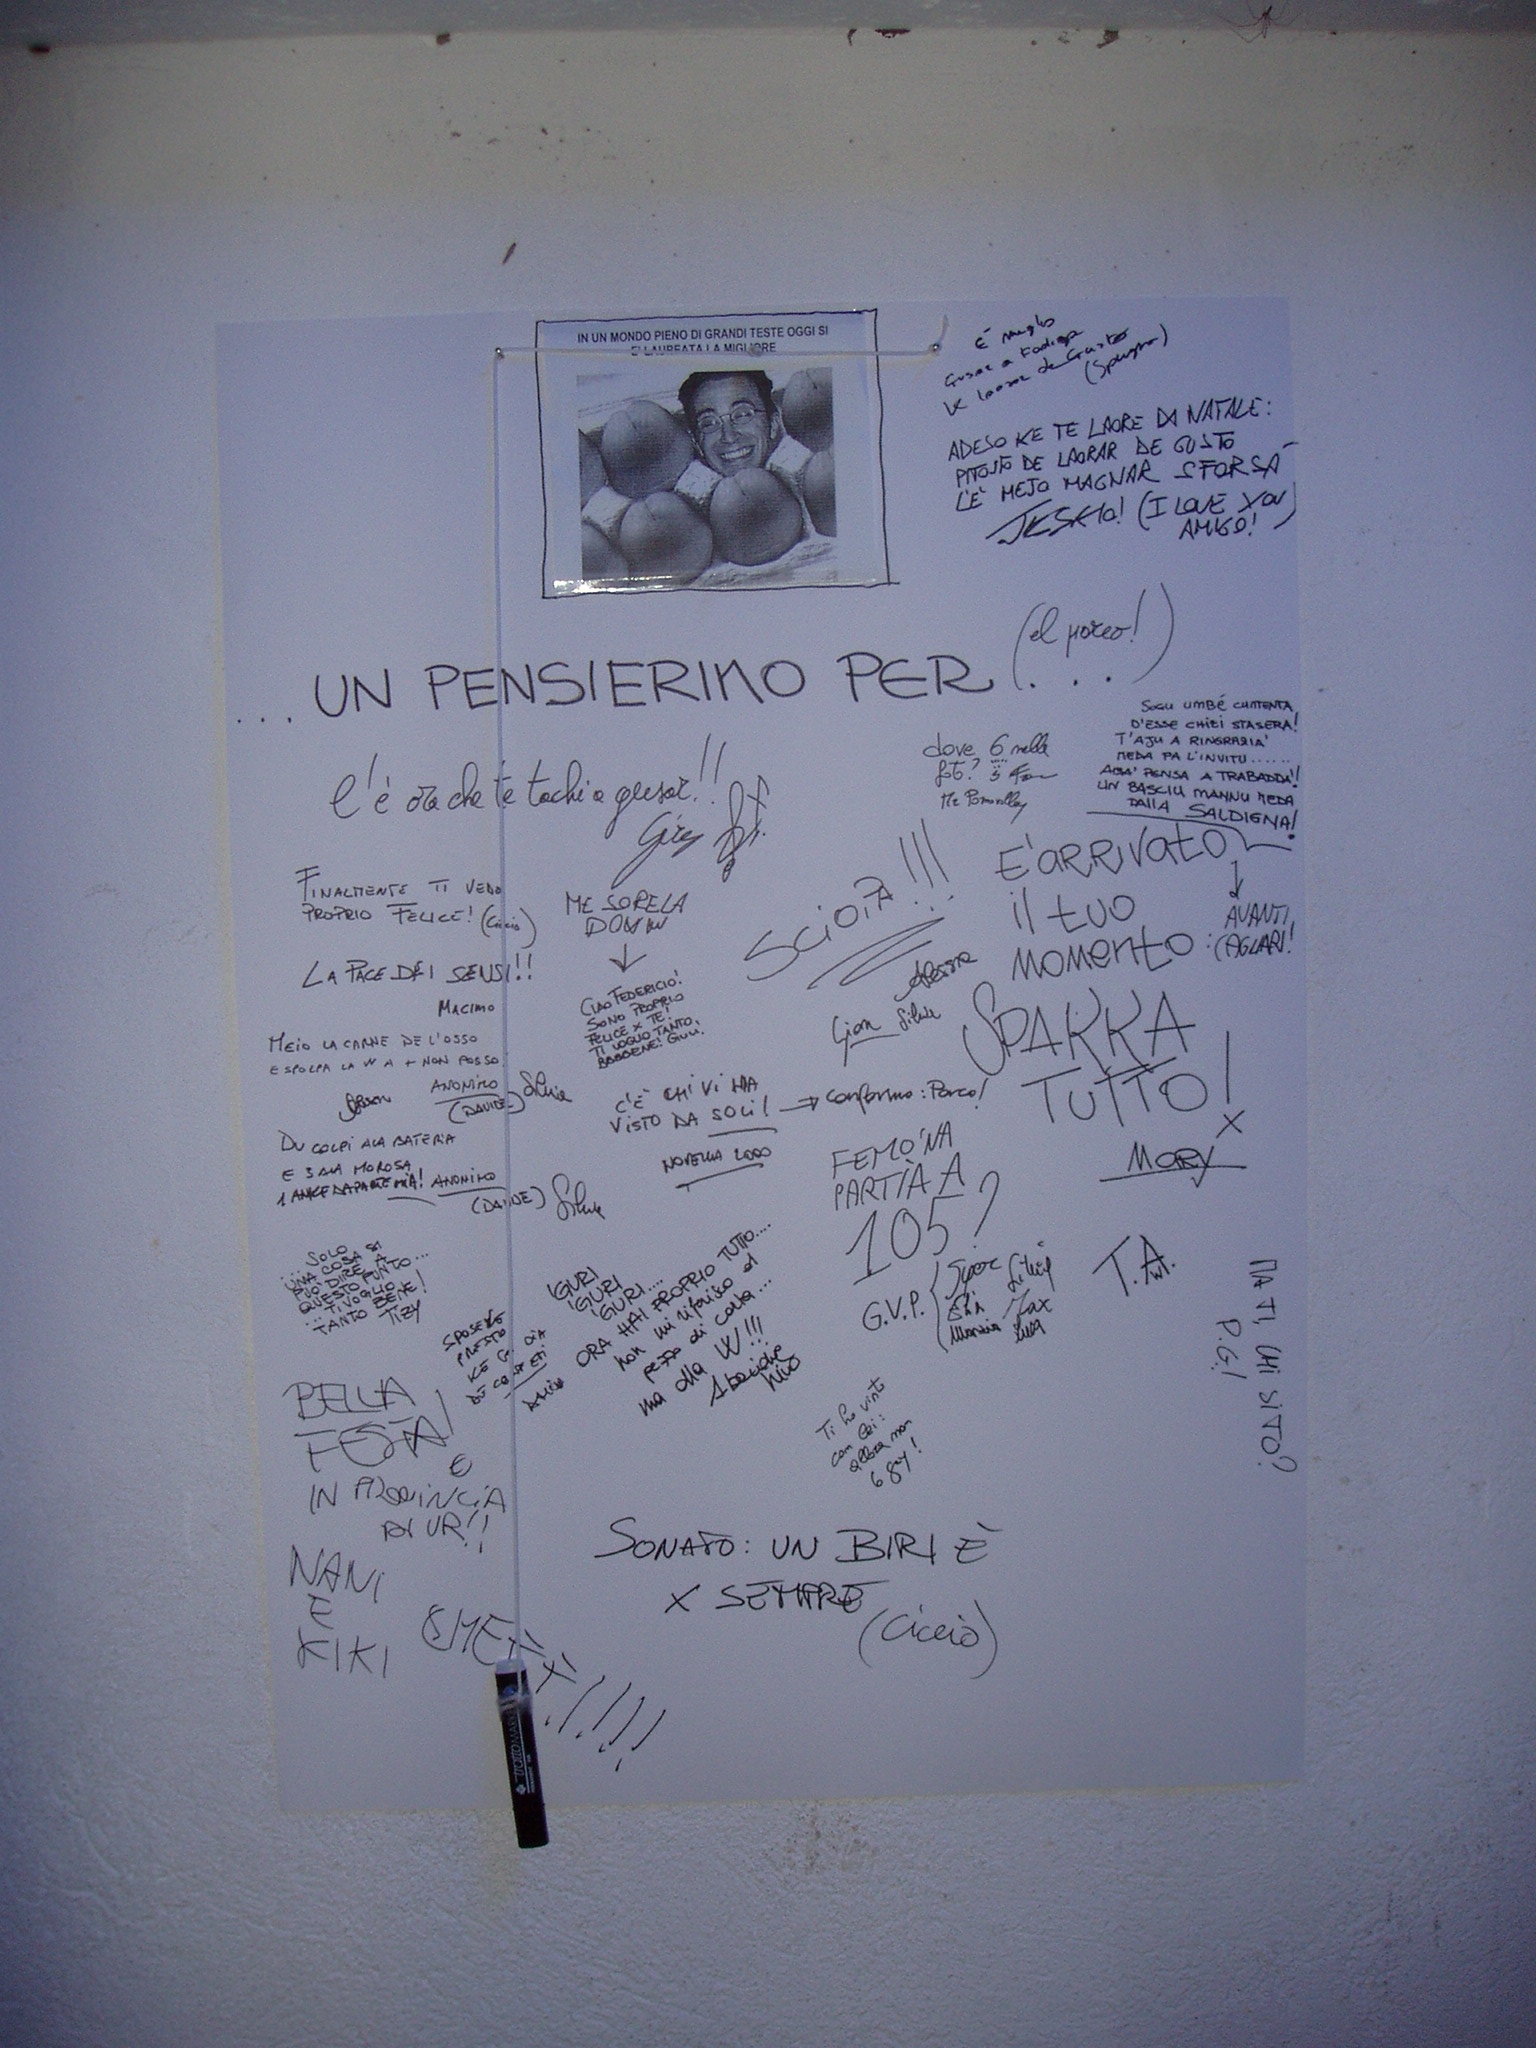 IN UN MONDO PIENO DI GRANDI TESTE OGGI SI
E' LAUREATA LA MIGLIORE
È meglio
(Spugna)
ADESO KE TE LAORE DA NATALE:
PITOSTO DE LAORAR DE GUSTO
L'È MEJO MAGNAR SFORSÀ
JESKIO! (I LOVE YOU
AMIGO!
(el porco!)
...UN PENSIERINO PER ...
L'è ora che te tachi a
dove 6 nella
foto?
SOGU UMBÉ CUNTENTA
D'ESSE CHIZI STASERA!
T'AJU A RINGRAZIA'
MEDA PA L'INVITU......
ABA' PENSA A TRABADDA'!
UN BASCIU MANNU MEDA
DALLA SALDIGNA!
FINALMENTE TI VEDO
PROPRIO FELICE! (Ciccio)
LA PACE DEI SENSI!!
MACIMO
ME SORELA
DONW
CIAO FEDERICIO!
SONO PROPRIO
FELICE X TE!
TI VOGLIO TANTO,
BBBBENE! GIULI'
SCIOIA!!!
Alessia
Gian Silvia
E' ARRIVATO
il tuo
MOMENTO:
AVANTI,
CAGLIARI!
SPAKKA
TUTTO!
X
MARY
MEIO LA CARNE DE L'OSSO
E SPOLPA LA W A + NON POSSO.
ANONIMO
(DAVIDE) Silvia
C'È CHI VI HA
VISTO DA SOLI! → Confermo: Porco!
NOVELLA 2000
DU COLPI ALA BATERIA
E 3 ALA MOROSA
ANONIMO
(DAVIDE) Silvia
FEMO'NA
PARTIA A
105?
G.V.P.
Silvia
Max
T.A.
... SOLO
UNA COSA SI
PUO' DIRE A
QUESTO PUNTO...
... TI VOGLIO
TANTO BENE!
TIZY
SPOSEVE
PRESTO
KE G. DIA
DÈ CONFETI
'GURI
'GURI
'GURI....
ORA HAI PROPRIO TUTTO....
non mi riferisco al
pezzo di carta...
ma alla W!!!
MA TI, CHI SITO?
P.G!
Ti ho visto
con lei:
allora non
6 gay!
BELLA
FESTA!
e
IN PROVINCIA
DI VR!!
NANI
E
KIKI
SONATO: UN BIRI È
X SEMPRE
(Ciccio)
TRATTO MARKER